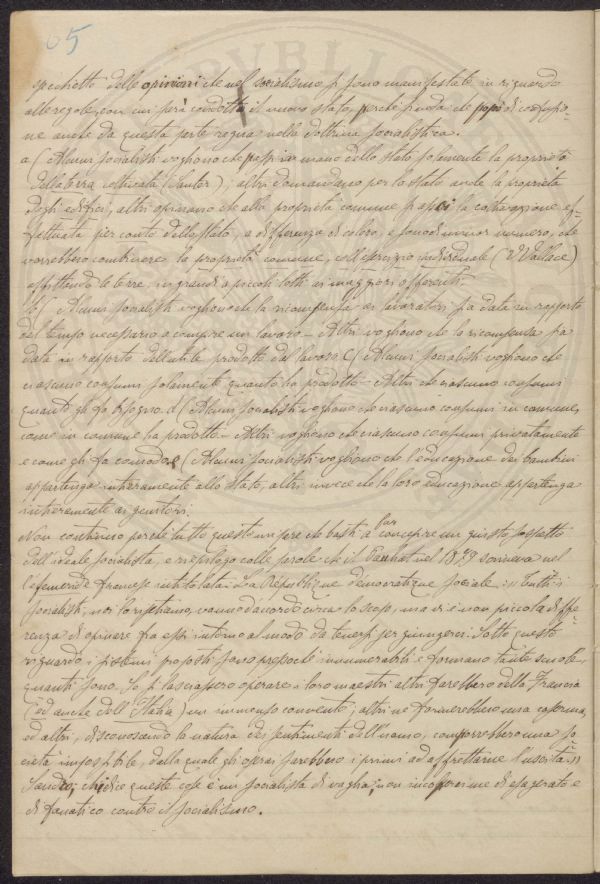 65
specchietto delle opinioni che nel socialismo si sono manifestate in riguardo
alle regole, con cui sarà condotto il nuovo stato, perché si veda che po' di confusio-
ne anche da questa parte regna nella dottrina socialistica.
a( Alcuni socialisti vogliono che passi in mano dello stato solamente la proprietà
della terra coltivata (Sauter); altri domandano per lo stato anche la proprietà
degli edifici; altri opinano che alla proprietà comune si associ la coltivazione ef-
fettuata per conto dello stato, a differenza di coloro, e sono di minor numero, che
vorrebbero combinare la proprietà comune, coll'esercizio individuale (Wallace)
affittando le terre in grandi o piccoli lotti ai maggiori offerenti.
b( Alcuni socialisti vogliono che la ricompensa ai lavoratori sia data in rapporto
del tempo necessario a compire un lavoro – Altri vogliono che la ricompensa sia
data in rapporto dell'utile prodotto dal lavoro. c( Alcuni socialisti vogliono che
ciascuno consumi solamente quanto ha prodotto – Altri che ciascuno consumi
quanto gli fa bisogno. d( Alcuni socialisti vogliono che ciascuno consumi in comune,
come in comune ha prodotto – Altri vogliono che ciascuno consumi privatamente
e come gli fa comodo. e( Alcuni socialisti vogliono che l'educazione dei bambini
appartenga interamente allo stato, altri invece che la loro educazione appartenga
interamente ai genitori.
Non continuo perché tutto questo mi pare che basti a far concepire un giusto sospetto
dell'ideale socialista, e riepilogo colle parole che il nel 18 9 scriveva nel
l'efemeride francese intitolata: La République démocratique sociale: "Tutti i
socialisti, noi lo ripetiamo, vanno d'accordo circa lo scopo, ma vi è non piccola diffe-
renza di opinare fra essi intorno al modo da tenersi per giungerci. Sotto questo
riguardo i sistemi proposti sono pressoché innumerabili e formano tante scuole,
quanti sono. Se si lasciassero operare i loro maestri altri farebbero della Francia
(ed anche dell'Italia) un immenso convento; altri ne formerebbero una caserma,
ed altri, disconoscendo la natura dei sentimenti dell'uomo, comporrebbero una so
cietà impossibile, dalla quale gli operai sarebbero i primi ad affrettarne l'uscita."
chi dice queste cose è un socialista di vaglia; non incolparmi di esagerato e
di fanatico contro il socialismo.